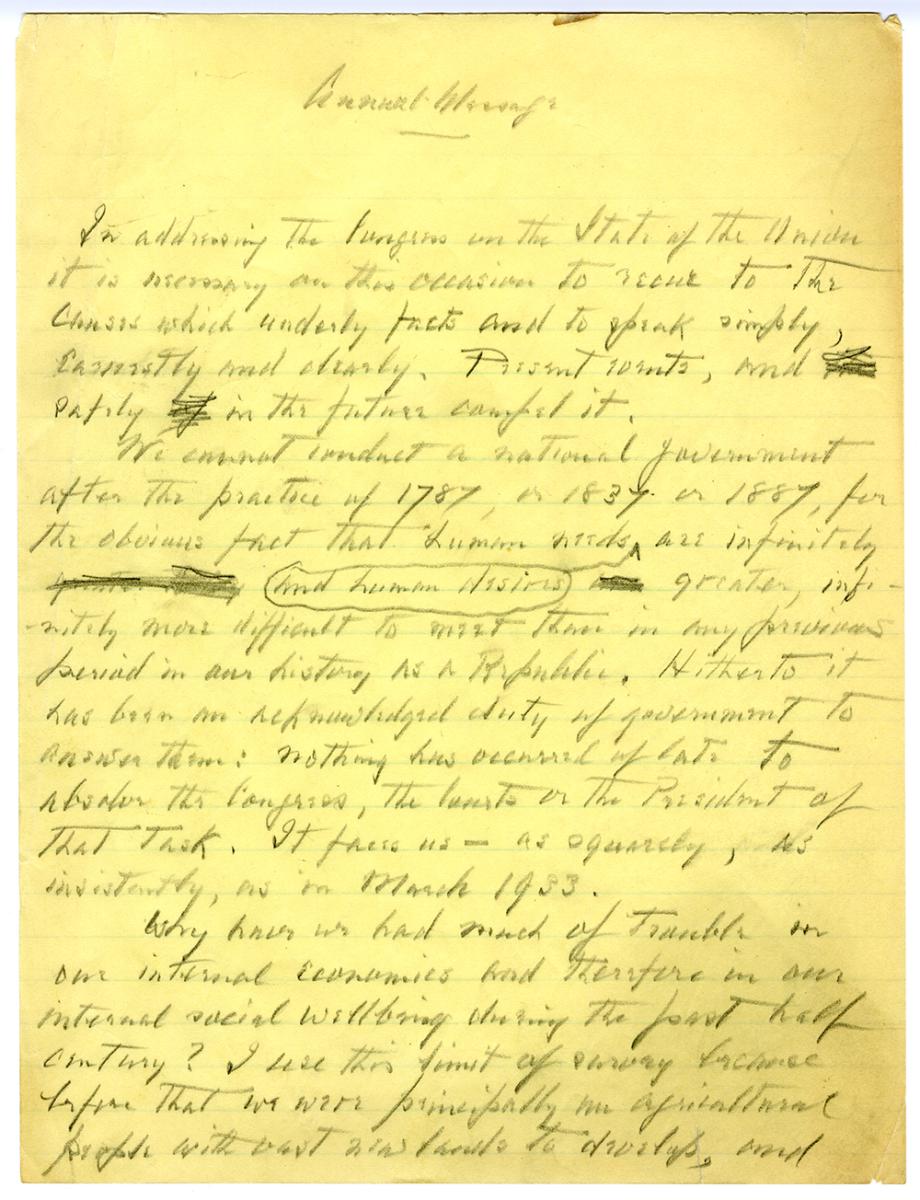 Annual Message
In addressing the Congress on the State of the Union
it is necessary on this occasion to recur to the
causes which underly facts and to speak simply,
earnestly and clearly. Present wants, and
safety in the future compel it.
We cannot conduct a national government
after the practice of 1787, or 1837 or 1887, for
the obvious fact that human needs, are infinitely
and human desires greater, infi-
-nitely more difficult to meet than in any previous
period in our history as a Republic. Hitherto it
has been an acknowledged duty of government to
answer them: nothing has occurred of late to
absolve the Congress, the Courts or the President of
that task. It faces us — as squarely, as
insistently, as in March 1933.
Why have we had much of trouble in
our internal economics and therefore in our
internal social wellbeing during the past half
century? I use this limit of survey because
before that we were principally an agricultural
people with vast new lands to develop, and